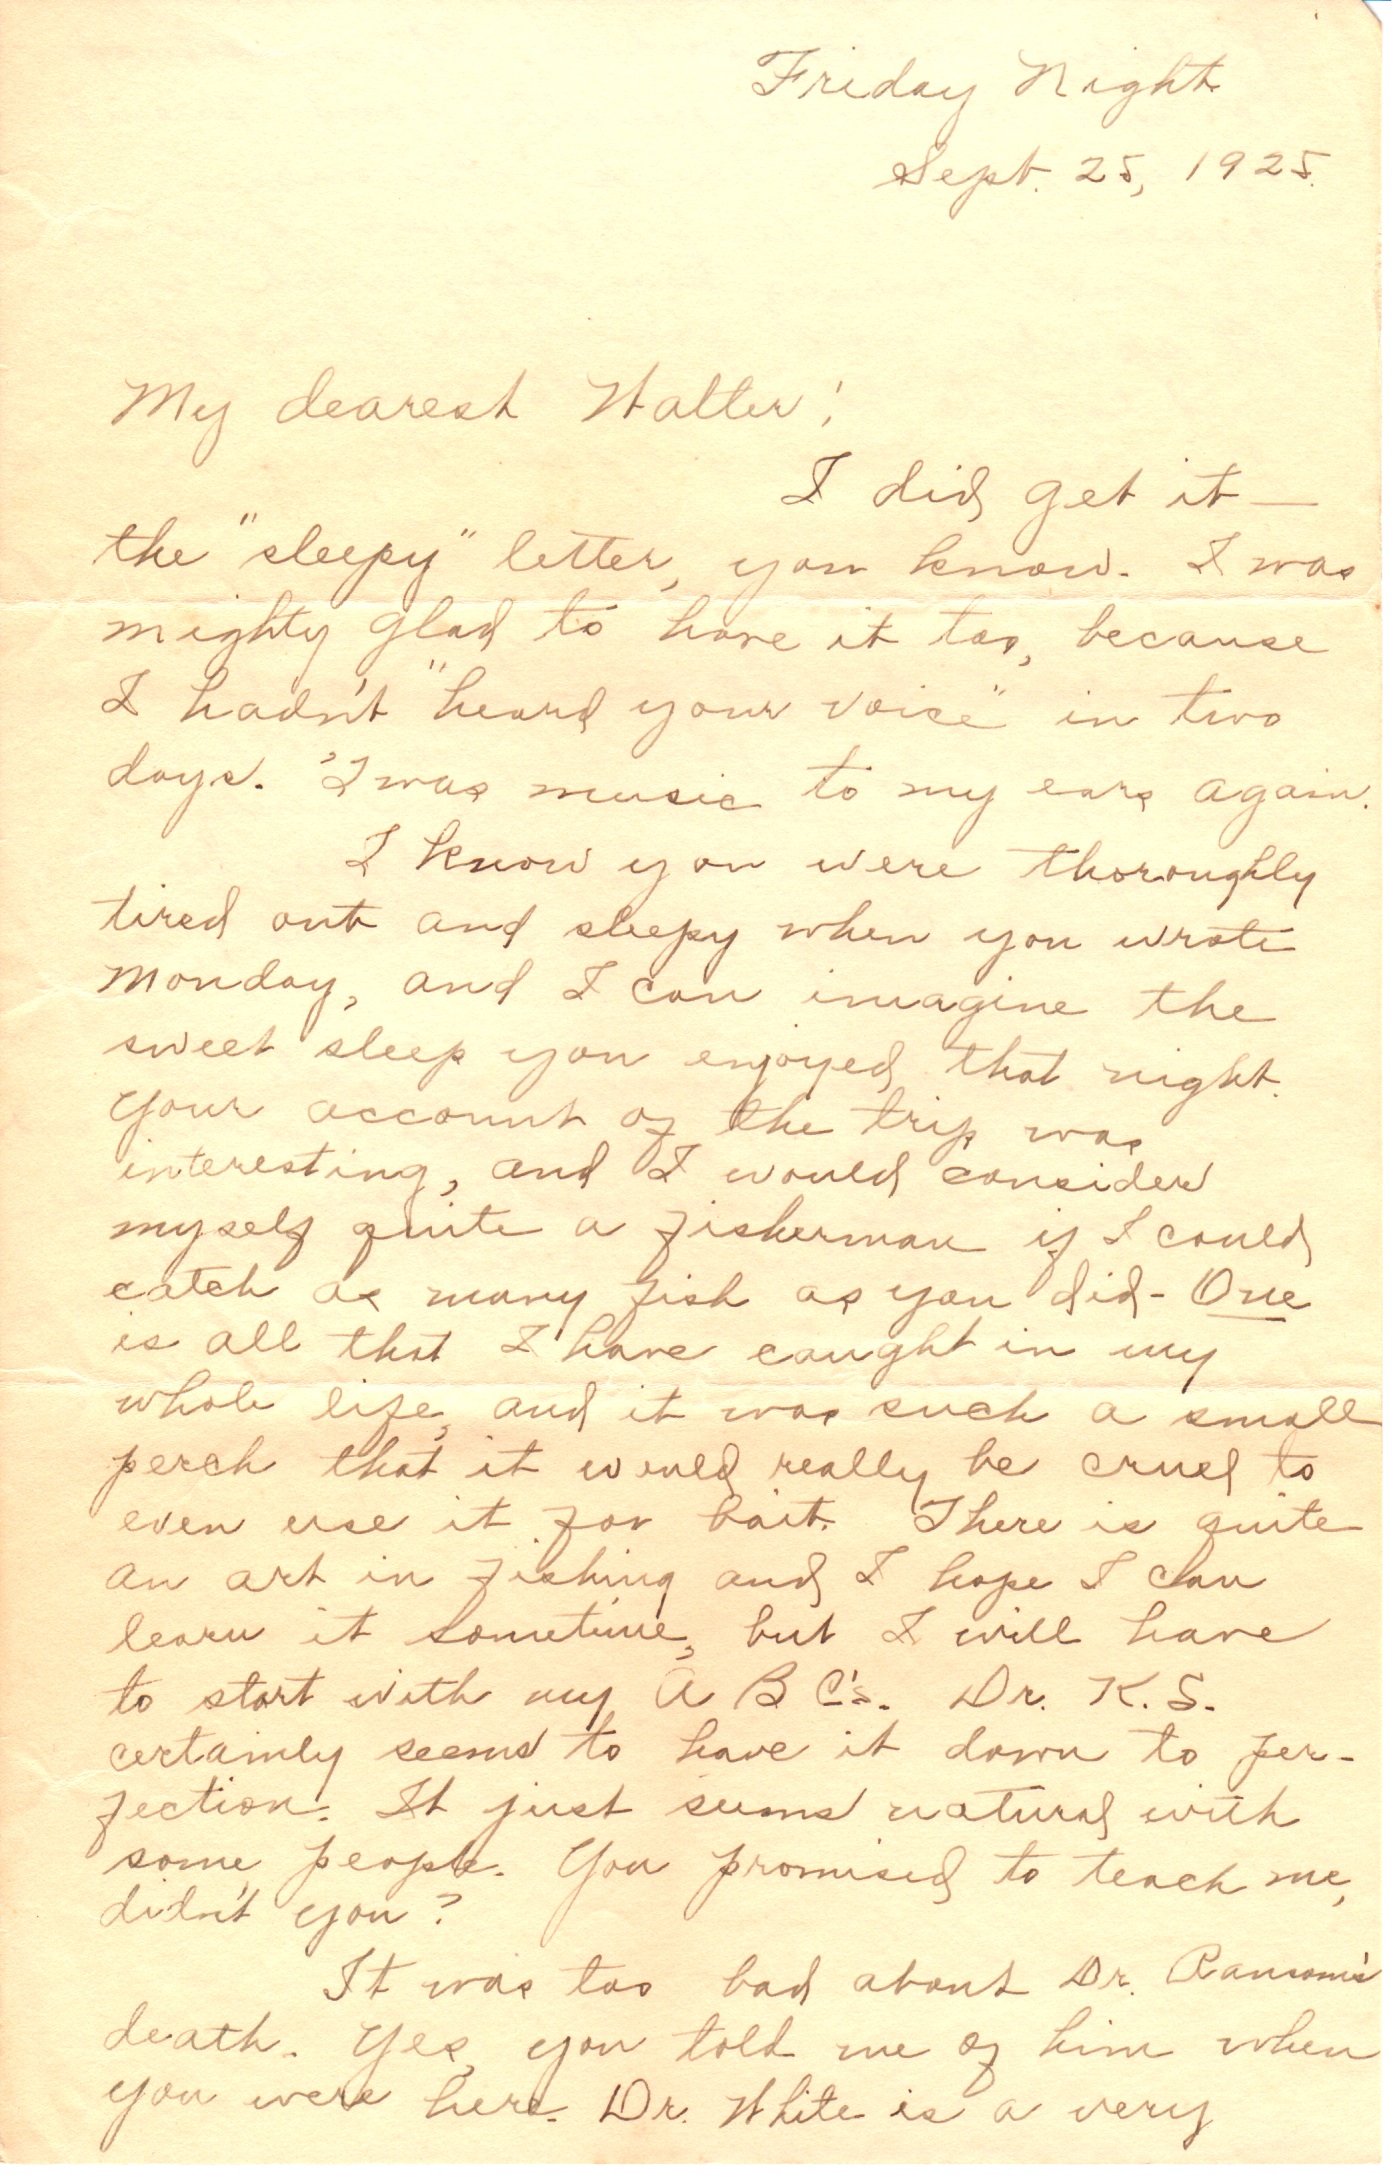 Friday Night.
Sept. 25, 1925.
My dearest Walter:
I did get it —
the "sleepy" letter, you know. I was
mighty glad to have it too, because
I hadn't "heard your voice" in two
days. 'Twas music to my ears again.
I know you were thoroughly
tired out and sleepy when you wrote
Monday, and I can imagine the
sweet sleep you enjoyed that night.
Your account of the trip was
interesting, and I would consider
myself quite a fisherman if I could
catch as many fish as you did - One
is all that I have caught in my
whole life, and it was such a small
perch that it would really be cruel to
even use it for bait. There is quite
an art in fishing and I hope I can
learn it sometime, but I will have
to start with my A B C's. Dr. K. S.
certainly seems to have it down to per-
fection. It just seems natural with
some people. You promised to teach me,
didn't you?
It was too bad about Dr. Ransom's
death. Yes, you told me of him when
you were here. Dr. White is a very